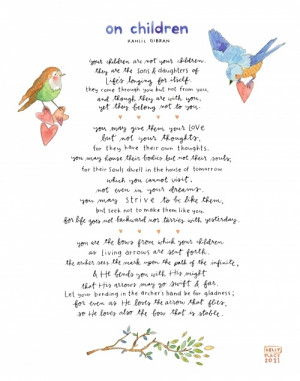 on children
KAHLIL GIBRAN
your children are not your children.
they are the sons & daughters of
Life's longing for itself.
they come through you but not from you,
and though they are with you,
yet they belong not to you.
you may give them your LOVE
but not your thoughts,
for they have their own thoughts.
you may house their bodies but not their souls,
for their souls dwell in the house of tomorrow
which you cannot visit,
not even in your dreams.
you may STRIVE to be like them,
but seek not to make them like you.
for life goes not backward nor tarries with yesterday.
you are the bows from which your children
as living arrows are sent forth.
the archer sees the mark upon the path of the infinite,
& He bends you with His might
that His arrows may go swift & far.
Let your bending in the archer's hand be for gladness;
for even as He loves the arrow that flies,
so He loves also the bow that is stable.